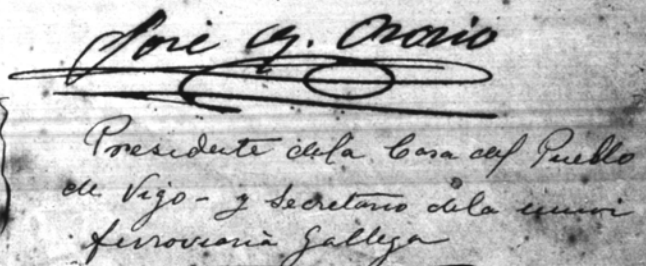 José G. Osorio
Presidente dela Casa del Pueblo
de Vigo - y Secretario dela
ferroviaria Gallega